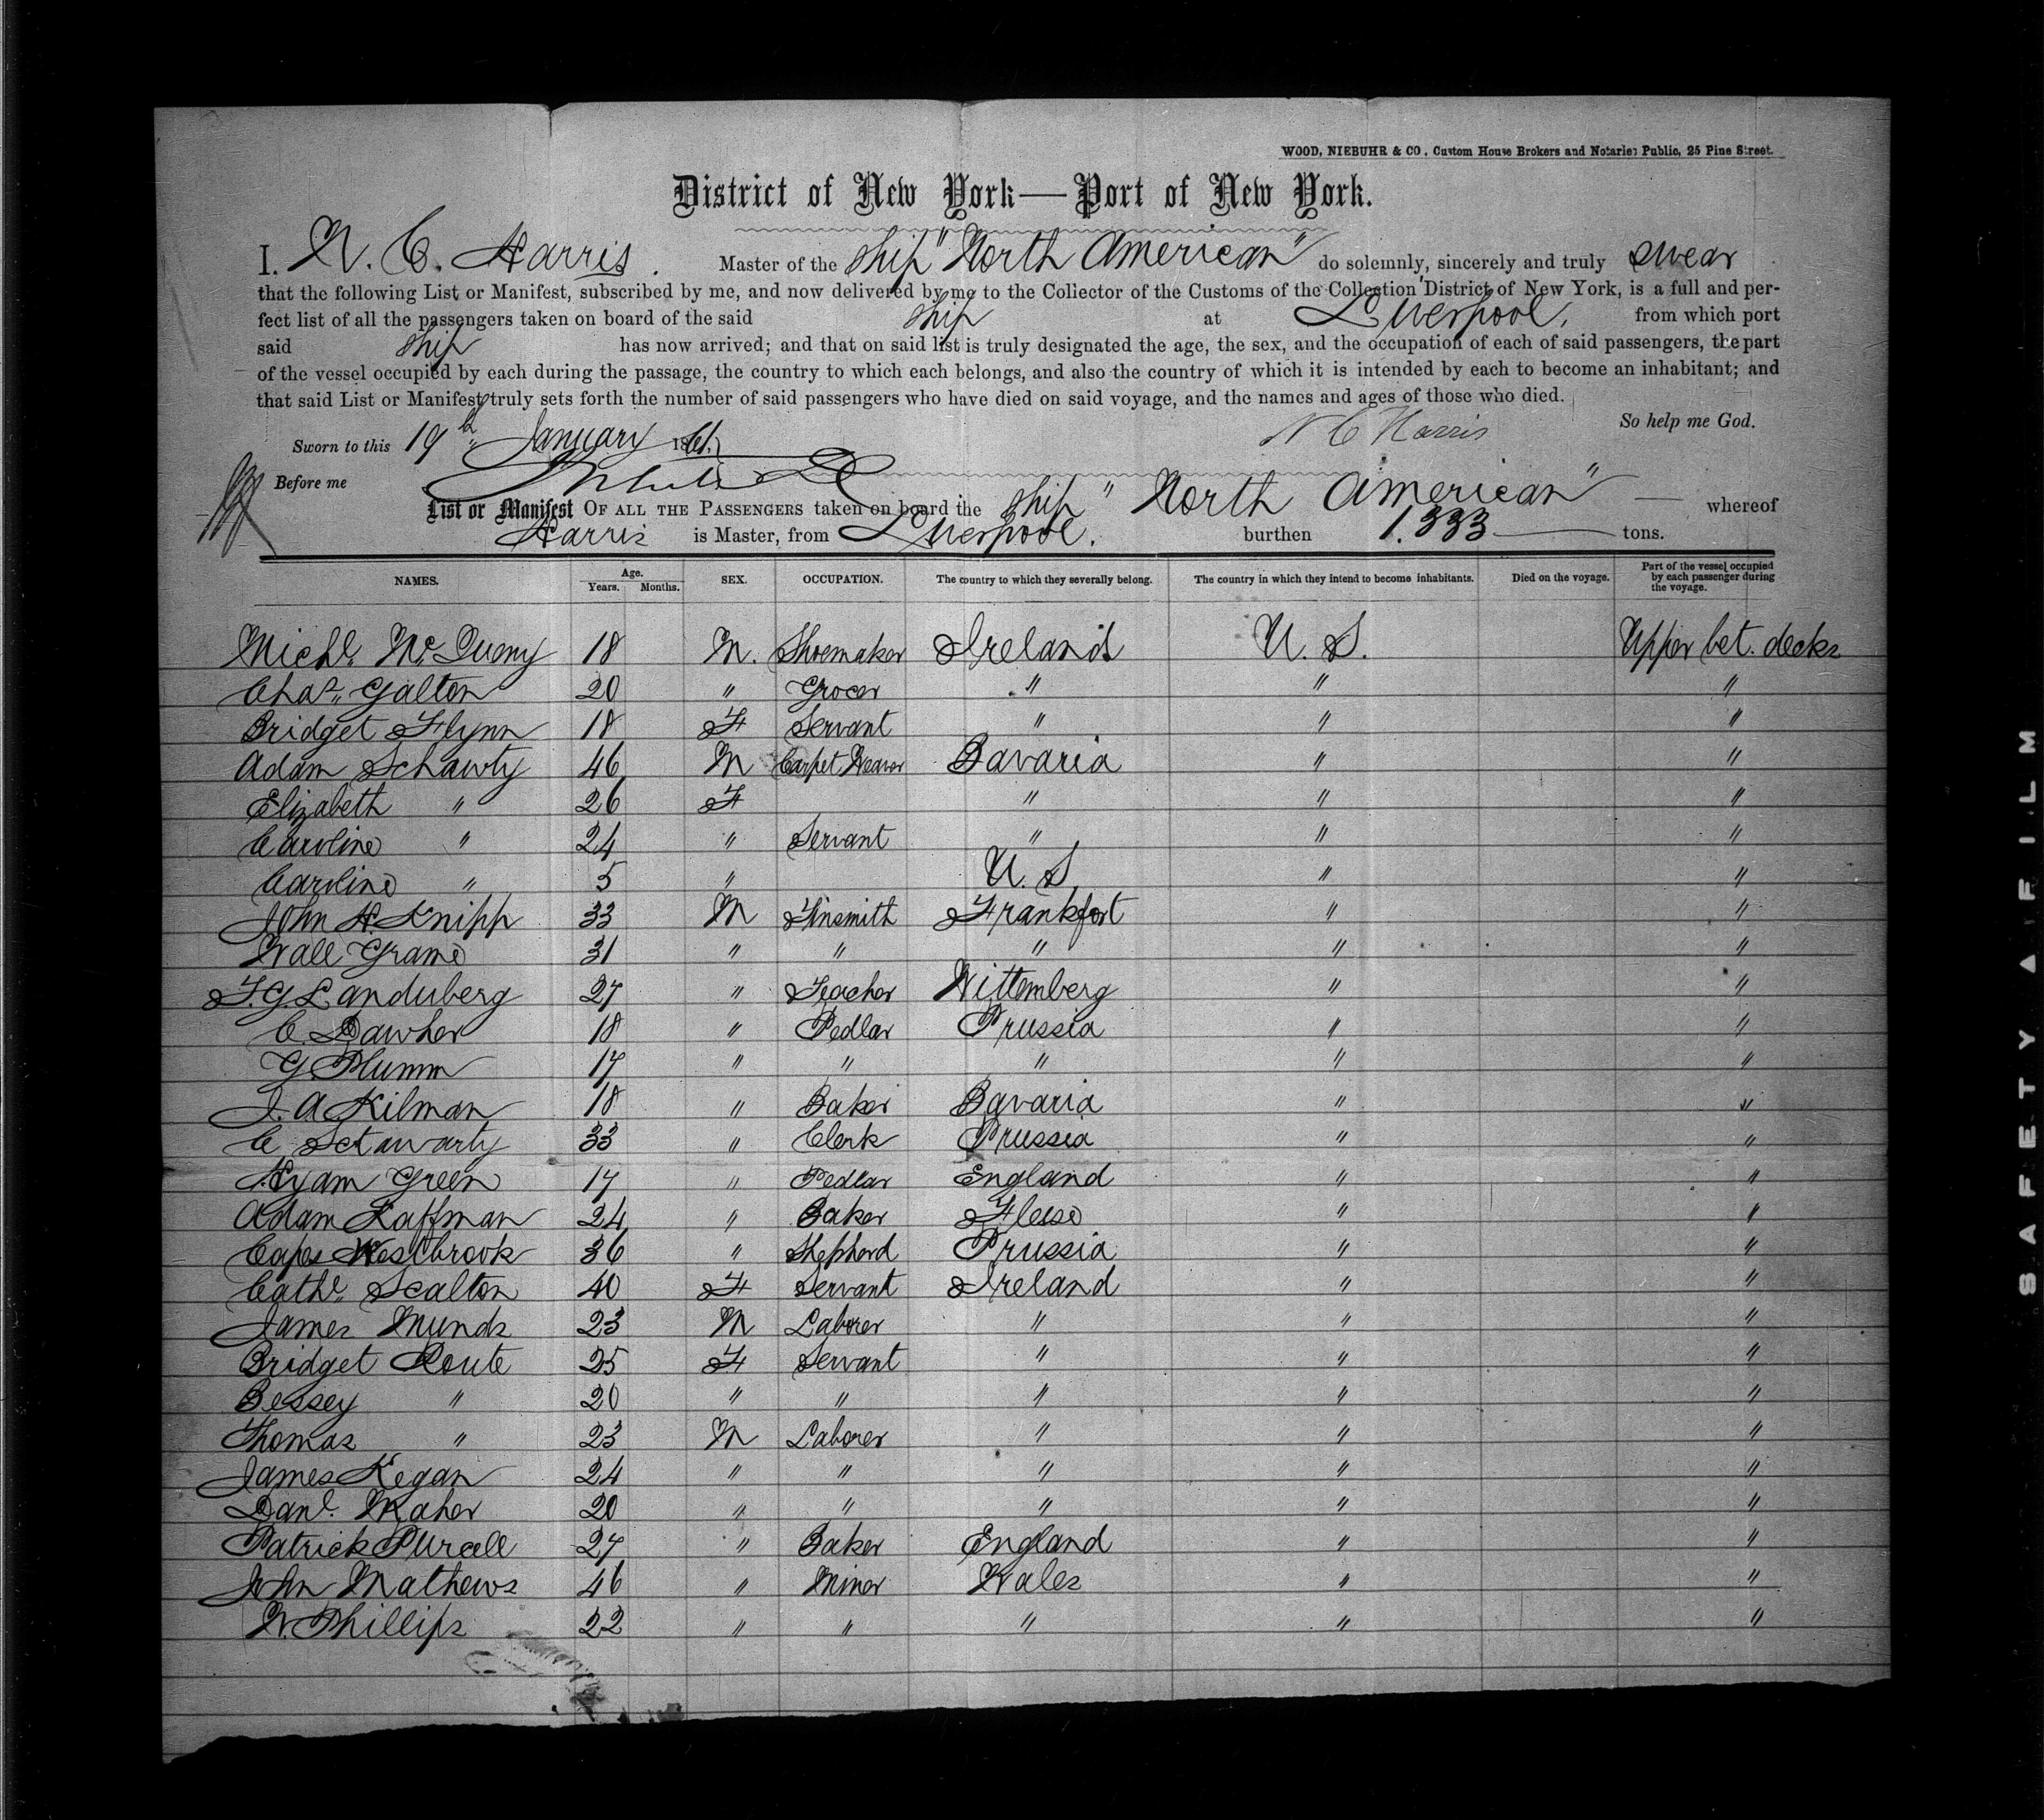 WOOD, NIEBUHR & CO., Custom House Brokers and Notaries Public, 25 Pine Street.
District of New York—Port of New York.
I. N. C. Harris. Master of the Ship "North American" do solemnly, sincerely and truly swear
that the following List or Manifest, subscribed by me, and now delivered by me to the Collector of the Customs of the Collection District of New York, is a full and per-
fect list of all the passengers taken on board of the said Ship at Liverpool, from which port
said Ship has now arrived; and that on said list is truly designated the age, the sex, and the occupation of each of said passengers, the part
of the vessel occupied by each during the passage, the country to which each belongs, and also the country of which it is intended by each to become an inhabitant; and
that said List or Manifest truly sets forth the number of said passengers who have died on said voyage, and the names and ages of those who died.
So help me God.
Sworn to this 19th January 1861. N C Harris
Before me
List or Manifest OF ALL THE PASSENGERS taken on board the Ship "North American" — whereof
Harris is Master, from Liverpool. burthen 1.333 tons.
NAMES. Age. Years. Months. SEX. OCCUPATION. The country to which they severally belong. The country in which they intend to become inhabitants. Died on the voyage. Part of the vessel occupied by each passenger during the voyage.
Michl. Mc 18 M. Shoemaker Ireland U. S. Upper bet. decks
Chas. Galton 20 " Grocer " " "
Bridget Flynn 18 F Servant " " "
Adam Schawty 46 M Carpet Weaver Bavaria " "
Elizabeth " 26 F " " "
Caroline " 24 " Servant " " "
Caroline " 5 " U. S " "
John H. Knipp 33 M Tinsmith Frankfort " "
Wall Grame 31 " " " " "
F. G. Landuberg 27 " Teacher Wittemberg " "
C. Dawher 18 " Pedlar Prussia " "
G Plumm 17 " " " " "
J. A Kilman 18 " Baker Bavaria " "
C. Schwarty 33 " Clerk Prussia " "
Hyam Green 17 " Pedlar England " "
Adam Kaffman 24 " Baker Hesse " "
Westbrook 36 " Shepherd Prussia " "
Cathe. Scalton 40 F Servant Ireland " "
James Munds 23 M Laborer " " "
Bridget Route 25 F Servant " " "
Bessey " 20 " " " " "
Thomas " 23 M Laborer " " "
James Kegan 24 " " " " "
Danl. Maher 20 " " " " "
Patrick Purcell 27 " Baker England " "
John Mathews 46 " Miner Wales " "
W. Phillips 22 " " " " "
SAFETY FILM